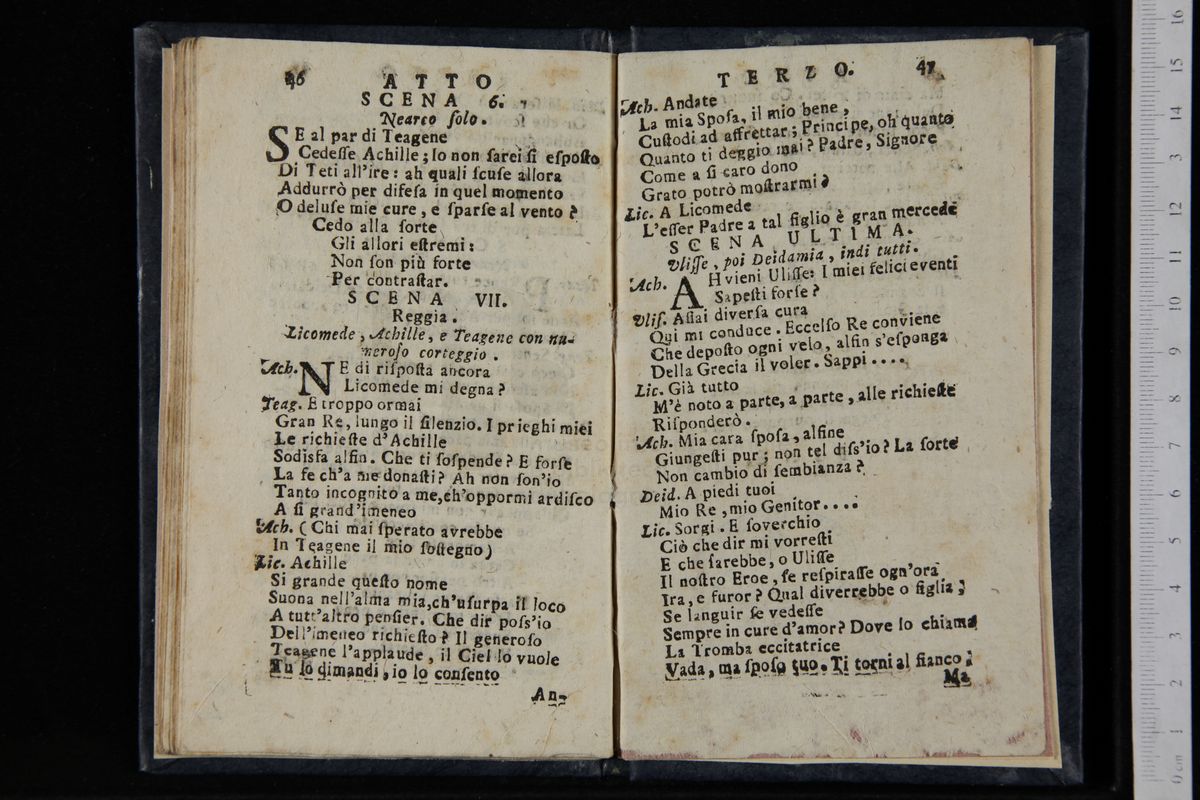 46 ATTO
SCENA 6.
Nearco ſolo.
SE al par di Teagene
Cedeſſe Achille; Io non ſarei ſi eſpoſto
Di Teti all'ire: ah quali ſcuſe allora
Addurrò per difeſa in quel momento
O deluſe mie cure, e ſparſe al vento?
Cedo alla ſorte
Gli allori eſtremi:
Non ſon più forte
Per contraſtar.
SCENA VII.
Reggia.
Licomede, Achille, e Teagene con nu-
meroſo corteggio.
Ach. NE di riſpoſta ancora
Licomede mi degna?
Teag. E troppo ormai
Gran Re, lungo il ſilenzio. I prieghi miei
Le richieſte d'Achille
Sodisfa alfin. Che ti ſoſpende? E forſe
La fe ch'a me donaſti? Ah non ſon'io
Tanto incognito a me, ch'oppormi ardiſco
A ſi grand'imeneo
Ach. (Chi mai ſperato avrebbe
In Teagene il mio ſoſtegno)
Lic. Achille
Si grande queſto nome
Suona nell'alma mia, ch'uſurpa il loco
A tutt'altro penſier. Che dir poſs'io
Dell'imeneo richieſto? Il generoſo
Teagene l'applaude, il Ciel lo vuole
Tu lo dimandi, io lo conſento
An-
TERZO. 47
Ach. Andate
La mia Spoſa, il mio bene,
Cuſtodi ad affrettar; Principe, oh quanto
Quanto ti deggio mai? Padre, Signore
Come a ſi caro dono
Grato potrò moſtrarmi?
Lic. A Licomede
L'eſſer Padre a tal figlio è gran mercede
SCENA ULTIMA.
Vliſſe, poi Deidamia, indi tutti.
Ach. AH vieni Uliſſe: I miei felici eventi
Sapeſti forſe?
Vliſ. Aſſai diverſa cura
Qui mi conduce. Eccelſo Re conviene
Che depoſto ogni velo, alfin s'eſponga
Della Grecia il voler. Sappi....
Lic. Già tutto
M'è noto a parte, a parte, alle richieſte
Riſponderò.
Ach. Mia cara ſpoſa, alfine
Giungeſti pur; non tel diſs'io? La ſorte
Non cambio di ſembianza?
Deid. A piedi tuoi
Mio Re, mio Genitor....
Lic. Sorgi. E ſoverchio
Ciò che dir mi vorreſti
E che ſarebbe, o Uliſſe
Il noſtro Eroe, ſe reſpiraſſe ogn'ora
Ira, e furor? Qual diverrebbe o figlia;
Se languir ſe vedeſſe
Sempre in cure d'amor? Dove lo chiama
La Tromba eccitatrice
Vada, ma ſpoſo tuo. Ti torni al fianco;
Ma